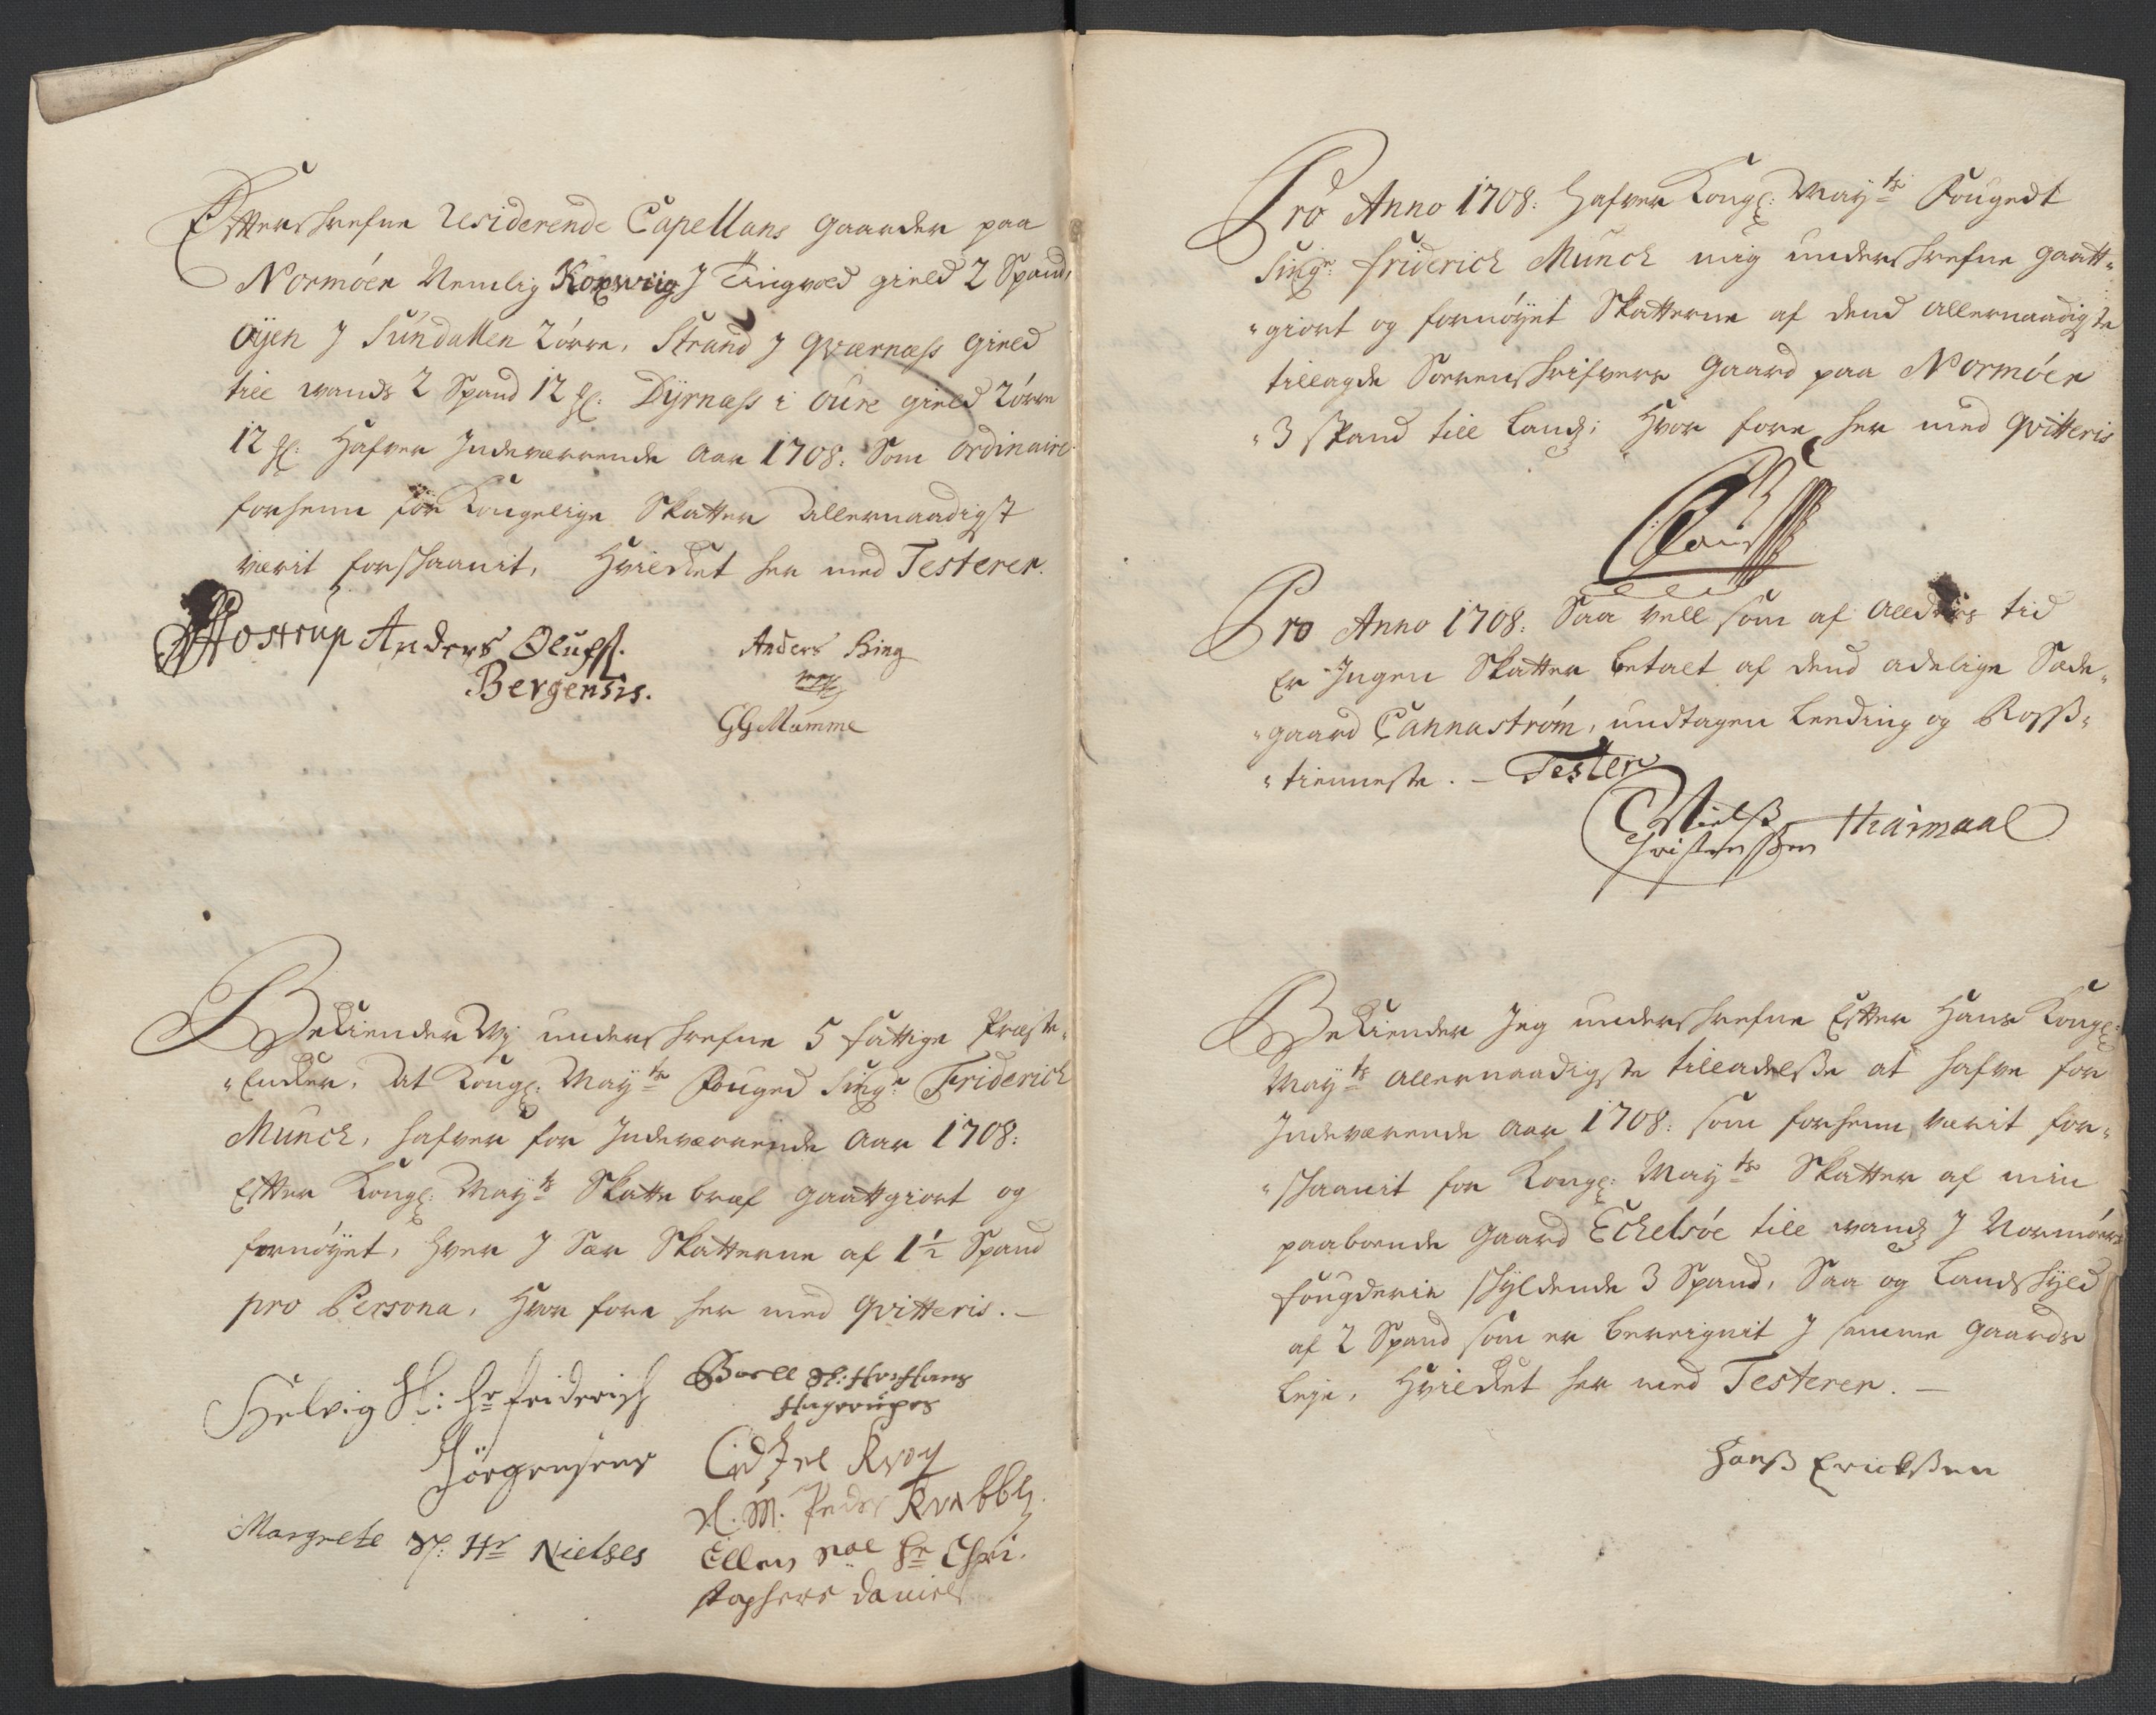 Effterskrefne Residerende Capellans gaarder paa
Normöer Nemlig Koxwiig J Tingvold gield 2 Spand,
Öÿen J Sundallen 2 örre, Strand J Qværness gield
till wands 2 Spand 12 ℔: Dÿrness i Oure gield 2 örre
12 ℔: Hafver Indeværrende Aar 1708: Som ordinaire
forhenn for Kongelige Skatter Allernaadigst
værit forskaanit, Hvilcket her med Testerer.
Hostrup Anders Olufs.
Bergensis.
Anders Bing
GGMumme
Bekiender Wj underskrefne 5 fattige Præste-
"Encker, At Kongl: Maÿts Fouged Sing.r Friderich
Munck, hafver for Indeværrende Aar 1708:
Efter Kongl: Maÿts Skatte bref gaattgiort og
fornöÿet, hver J Sær Skatterne af 1½ Spand
pro Persona, Hvor fore her med qvitteris. –
Helvig Sl: Hr friderich
Jörgensens
Margrete Sl. Hr Nielses
Boell Sl: Hr: Hans
Hagerupes
Sl. M. Peder
Ellen Sal Hr Chri.
stophers Daniels
Pro Anno 1708: hafver Kongl: Maÿts Fougedt
Singr: Friderich Munck mig underskrefne gaatt-
"giort og fornöÿet Skatterne af dend allernaadigste
tillagde Sorenskrifvers Gaard paa Normöer
"3 Spand till Landz; Hvor fore her med qvitteris
Pro Anno 1708: Saa vell som af Allders tid
Er Ingen Skatter betalt af dend adelige Sæde-
"gaard Cannaström, undtagen Leeding og Ross-
"tienneste. – Tester
Nielss
Christenssen
Bekiender Jeg underskrefne Effter Hans Kongl:
Maÿts allernaadigste tilladelsse at hafve for
Indeværende Aar 1708: som forhenn værit for-
"skaanit for Kongl: Maÿts Skatter af min
paaboende Gaard Echelsöe till wandz J Normöers
fougderie skÿldende 3 Spand, Saa og Landskÿld
af 2 Spand som er bereignit J samme Gaards
Leje, Hvilcket her med Testerer. –
Hanss Erickssen